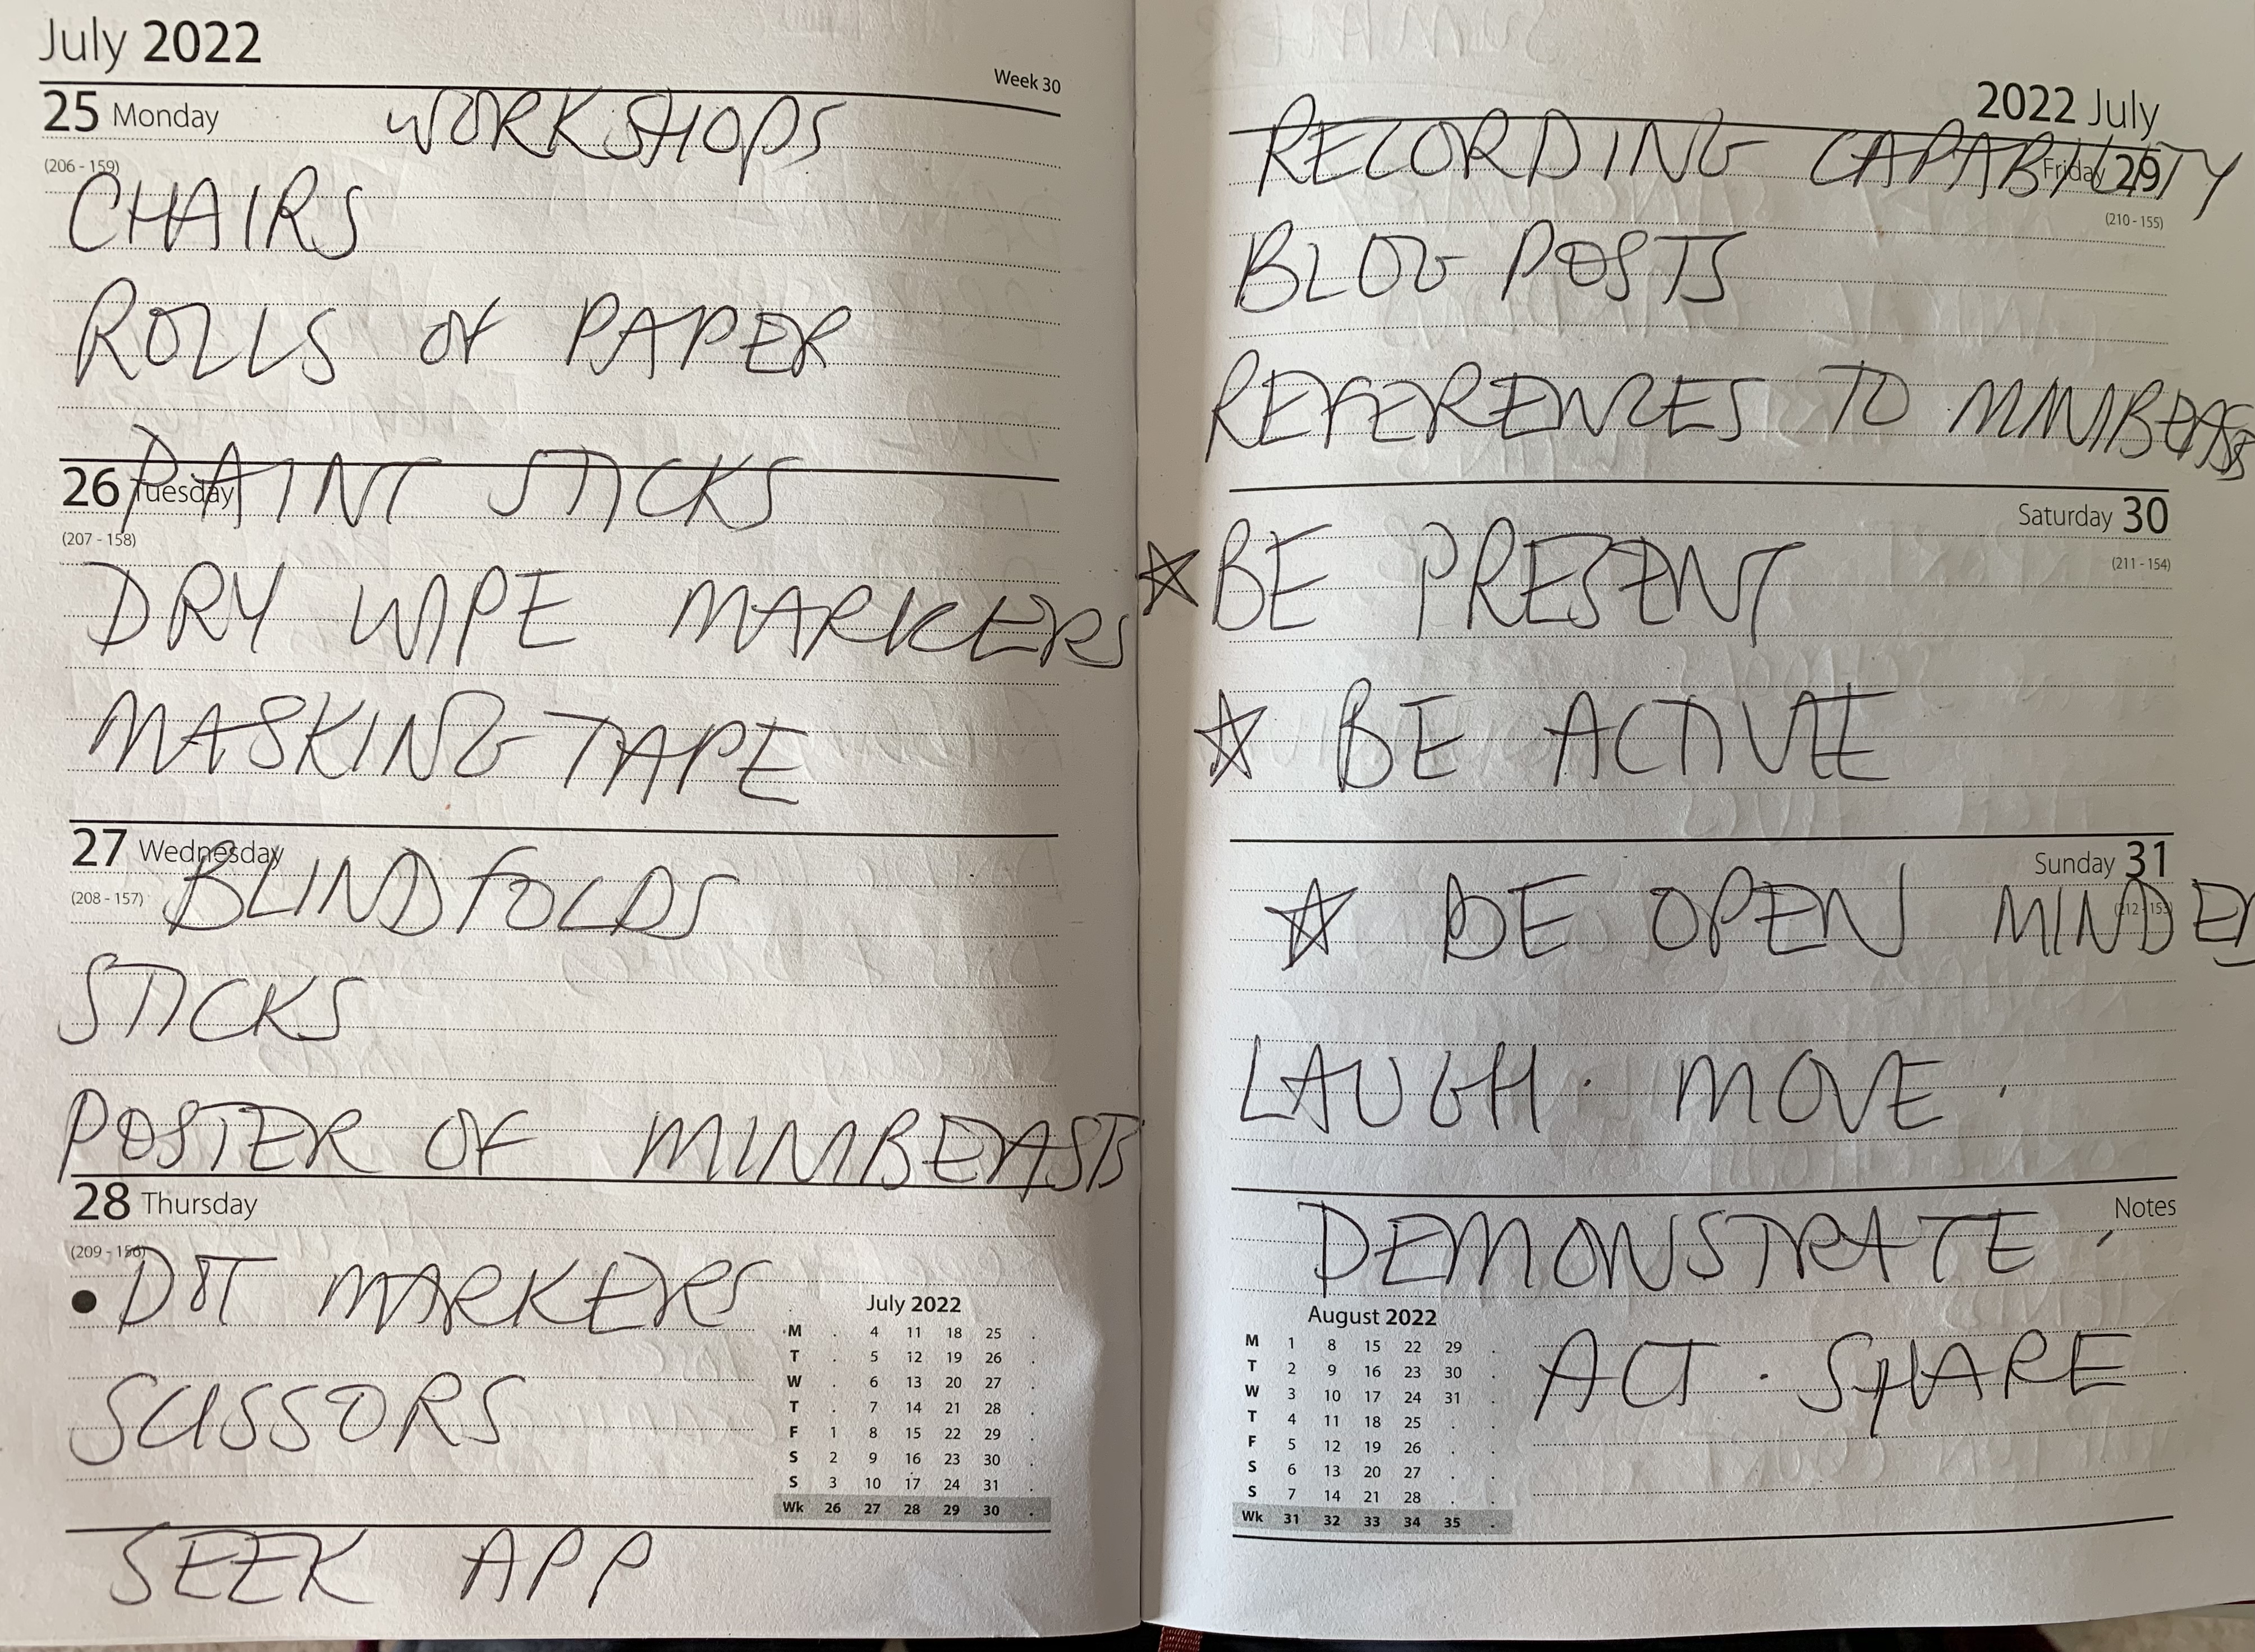 July 2022
Week 30
25 Monday WORKSHOPS
(206 - 159)
CHAIRS
ROLLS OF PAPER
26 Tuesday PAINT STICKS
(207 - 158)
DRY WIPE MARKERS
MASKING TAPE
27 Wednesday
(208 - 157) BLINDFOLDS
STICKS
POSTER OF MINIBEASTS
28 Thursday
(209 - 156)
DOT MARKERS
SCISSORS
July 2022
M . 4 11 18 25 .
T . 5 12 19 26 .
W . 6 13 20 27 .
T . 7 14 21 28 .
F 1 8 15 22 29 .
S 2 9 16 23 30 .
S 3 10 17 24 31 .
Wk 26 27 28 29 30 .
SEEK APP
2022 July
RECORDING CAPABILITY
Friday 29
(210 - 155)
BLOG POSTS
REFERENCES TO MINIBEASTS
Saturday 30
(211 - 154)
☆ BE PRESENT
☆ BE ACTIVE
Sunday 31
(212 - 153)
☆ BE OPEN MINDED
LAUGH · MOVE ·
Notes
DEMONSTRATE ·
August 2022
M 1 8 15 22 29 .
T 2 9 16 23 30 .
W 3 10 17 24 31 .
T 4 11 18 25 . .
F 5 12 19 26 . .
S 6 13 20 27 . .
S 7 14 21 28 . .
Wk 31 32 33 34 35 .
ACT · SHARE